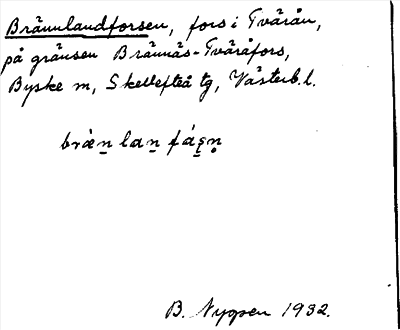 Brännlandforsen, fors i Tvärån,
på gränsen Brännäs-Tväråfors,
Byske m, Skellefteå tg, Västerb.l.
bræ̀n̲ lan̲ fás̲n̥
B. Nygren 1932.